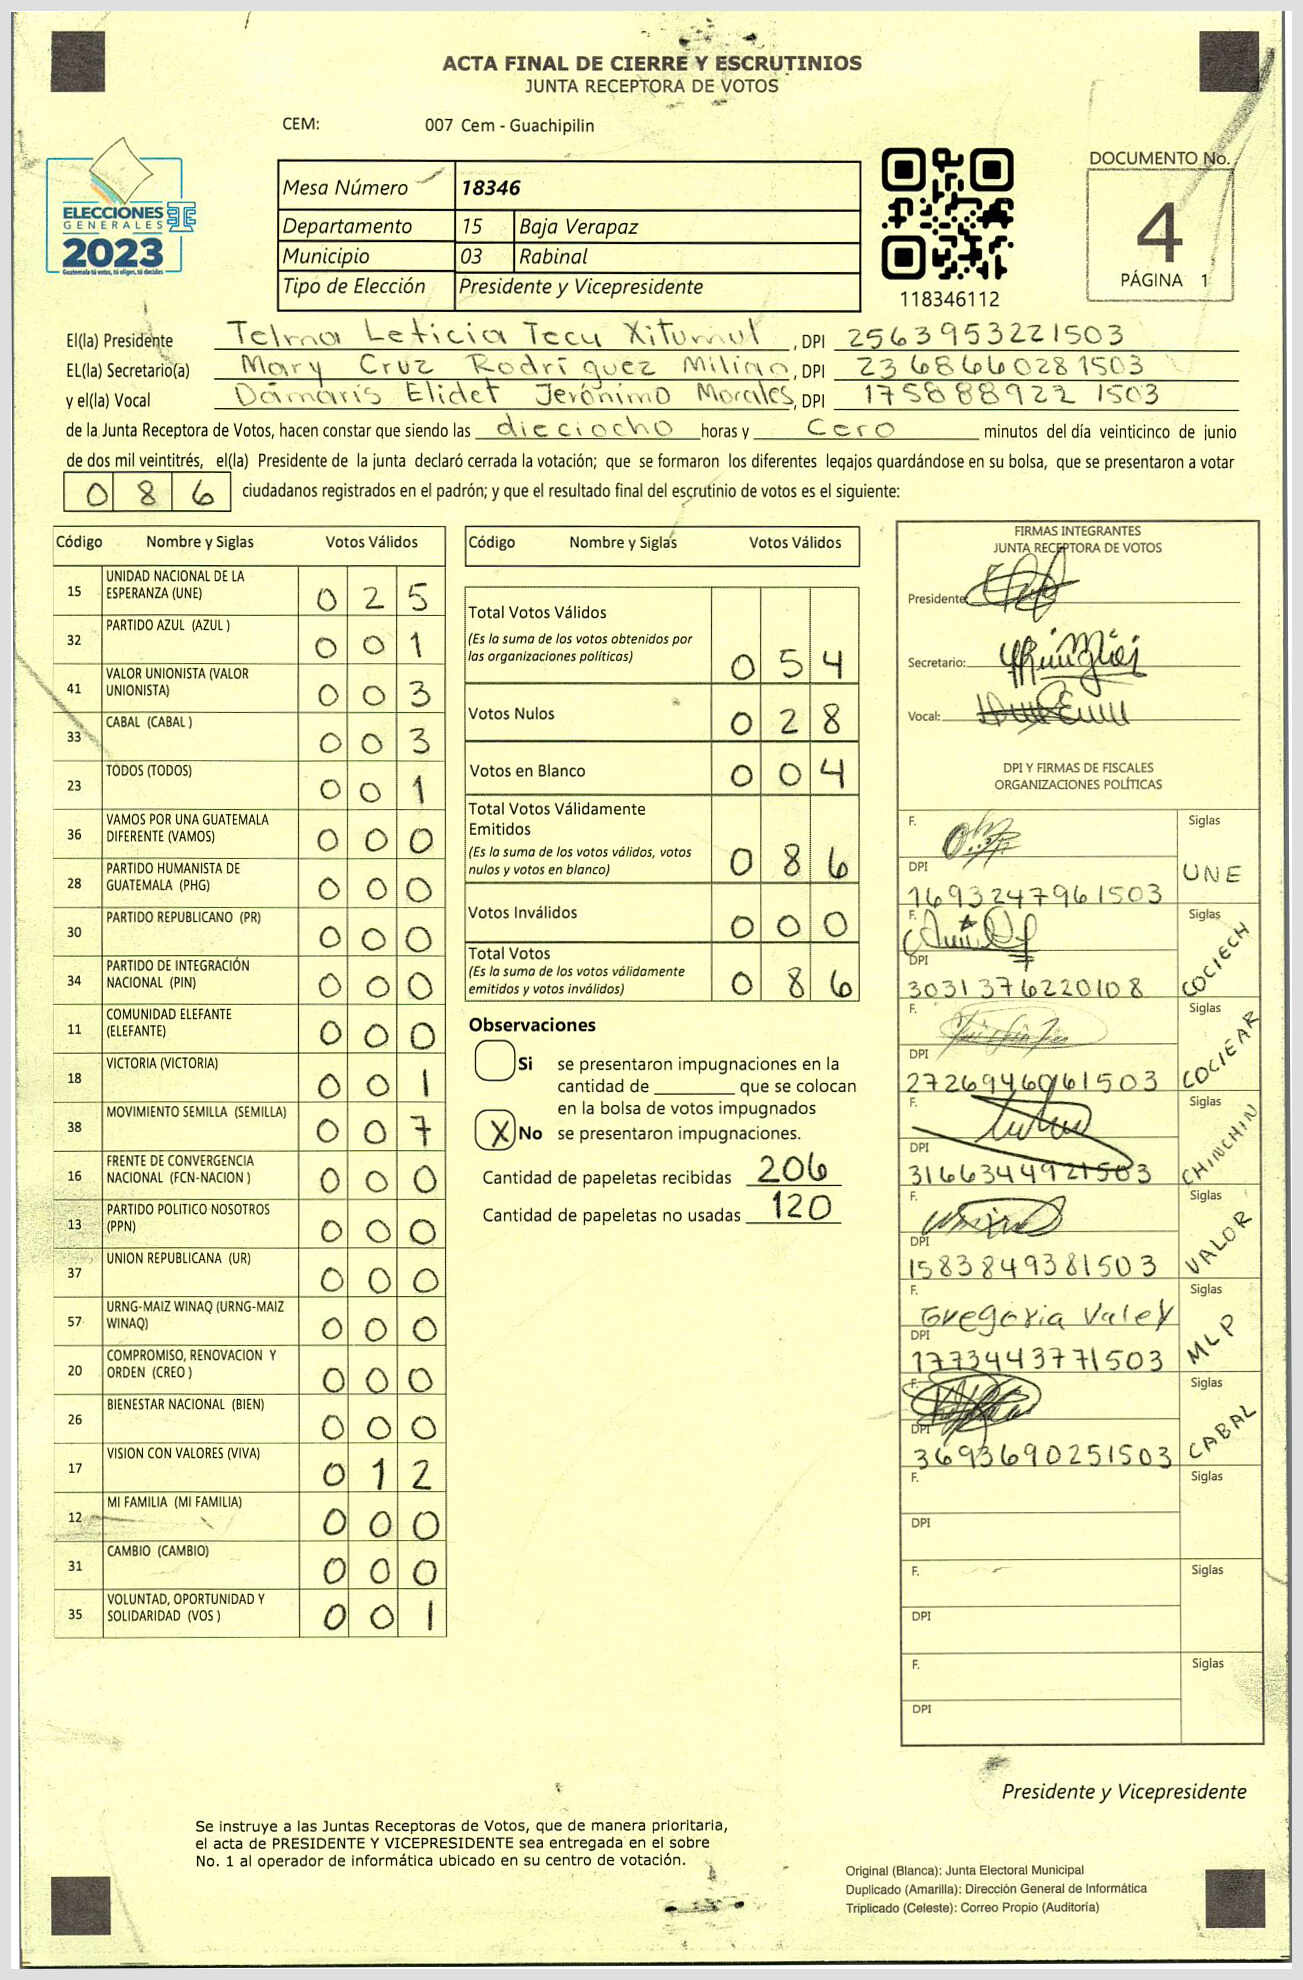 ACTA FINAL DE CIERRE Y ESCRUTINIOS
JUNTA RECEPTORA DE VOTOS
CEM: 007 Cem - Guachipilin
ELECCIONES
GENERALES
2023
Guatemala tú votas, tú eliges, tú decides
Mesa Número 18346
Departamento 15 Baja Verapaz
Municipio 03 Rabinal
Tipo de Elección Presidente y Vicepresidente
118346112
DOCUMENTO No.
4
PÁGINA 1
El(la) Presidente Telma Leticia Tecu Xitumul, DPI 2563953221503
EL(la) Secretario(a) Mary Cruz Rodríguez Milian, DPI 2368660281503
y el(la) Vocal Dámaris Elidet Jerónimo Morales, DPI 1758889221503
de la Junta Receptora de Votos, hacen constar que siendo las dieciocho horas y Cero minutos del día veinticinco de junio
de dos mil veintitrés, el(la) Presidente de la junta declaró cerrada la votación; que se formaron los diferentes legajos guardándose en su bolsa, que se presentaron a votar
086 ciudadanos registrados en el padrón; y que el resultado final del escrutinio de votos es el siguiente:
Código Nombre y Siglas Votos Válidos
15 UNIDAD NACIONAL DE LA ESPERANZA (UNE) 025
32 PARTIDO AZUL (AZUL ) 001
41 VALOR UNIONISTA (VALOR UNIONISTA) 003
33 CABAL (CABAL ) 003
23 TODOS (TODOS) 001
36 VAMOS POR UNA GUATEMALA DIFERENTE (VAMOS) 000
28 PARTIDO HUMANISTA DE GUATEMALA (PHG) 000
30 PARTIDO REPUBLICANO (PR) 000
34 PARTIDO DE INTEGRACIÓN NACIONAL (PIN) 000
11 COMUNIDAD ELEFANTE (ELEFANTE) 000
18 VICTORIA (VICTORIA) 001
38 MOVIMIENTO SEMILLA (SEMILLA) 007
16 FRENTE DE CONVERGENCIA NACIONAL (FCN-NACION ) 000
13 PARTIDO POLITICO NOSOTROS (PPN) 000
37 UNION REPUBLICANA (UR) 000
57 URNG-MAIZ WINAQ (URNG-MAIZ WINAQ) 000
20 COMPROMISO, RENOVACION Y ORDEN (CREO ) 000
26 BIENESTAR NACIONAL (BIEN) 000
17 VISION CON VALORES (VIVA) 012
12 MI FAMILIA (MI FAMILIA) 000
31 CAMBIO (CAMBIO) 000
35 VOLUNTAD, OPORTUNIDAD Y SOLIDARIDAD (VOS ) 001
Código Nombre y Siglas Votos Válidos
Total Votos Válidos
(Es la suma de los votos obtenidos por
las organizaciones políticas) 054
Votos Nulos 028
Votos en Blanco 004
Total Votos Válidamente
Emitidos
(Es la suma de los votos válidos, votos
nulos y votos en blanco) 086
Votos Inválidos 000
Total Votos
(Es la suma de los votos válidamente
emitidos y votos inválidos) 086
Observaciones
Si se presentaron impugnaciones en la
cantidad de ________ que se colocan
en la bolsa de votos impugnados
X No se presentaron impugnaciones.
Cantidad de papeletas recibidas 206
Cantidad de papeletas no usadas 120
FIRMAS INTEGRANTES
JUNTA RECEPTORA DE VOTOS
Presidente:
Secretario:
Vocal:
DPI Y FIRMAS DE FISCALES
ORGANIZACIONES POLÍTICAS
F. Siglas
DPI UNE
1693247961503
F. Siglas
DPI COCIECH
3031376220108
F. Siglas
DPI COCIEAR
2726946061503
F. Siglas
DPI CHINCHIN
3166344921503
F. Siglas
DPI VALOR
1583849381503
F. Gregoria Valey Siglas
DPI MLP
1773443771503
F. Siglas
DPI CABAL
3693690251503
F. Siglas
DPI
F. Siglas
DPI
F. Siglas
DPI
Presidente y Vicepresidente
Se instruye a las Juntas Receptoras de Votos, que de manera prioritaria,
el acta de PRESIDENTE Y VICEPRESIDENTE sea entregada en el sobre
No. 1 al operador de informática ubicado en su centro de votación.
Original (Blanca): Junta Electoral Municipal
Duplicado (Amarilla): Dirección General de Informática
Triplicado (Celeste): Correo Propio (Auditoría)